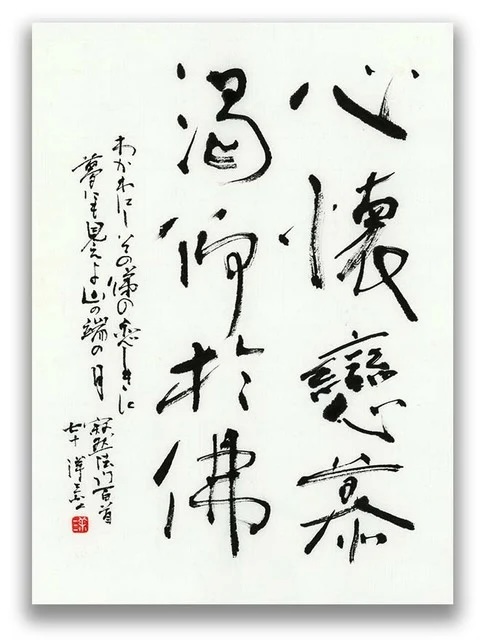 心懐戀慕
渇仰於佛
わかれにしその俤の恋しきに
夢にも見えよ山の端の月
寂然法門百首
七十